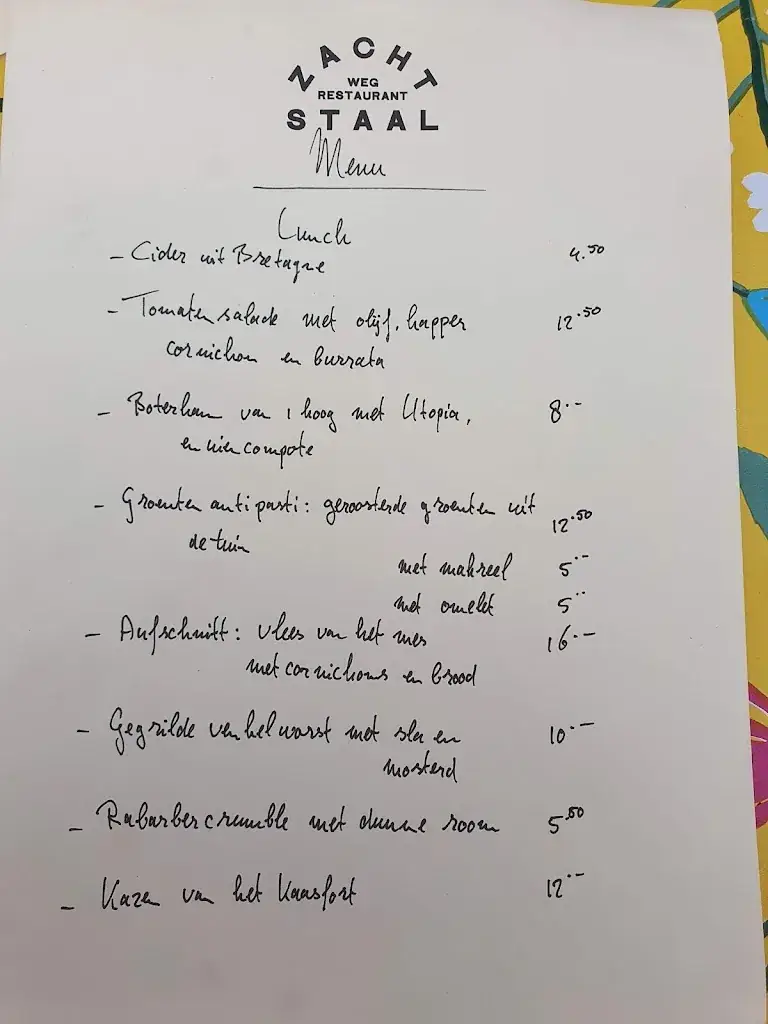 ZACHT
WEG
RESTAURANT
STAAL
Menu
Lunch
- Cider uit Bretagne 4.50
- Tomaten salade met olijf, kapper 12.50
cornichon en burrata
- Boterham van 1 hoog met Utopia, 8.-
en uien compote
- Groenten antipasti: geroosterde groenten uit 12.50
de tuin
met makreel 5.-
met omelet 5.-
- Aufschnitt: vlees van het mes 16.-
met cornichons en brood
- Gegrilde venkelworst met sla en 10.-
mosterd
- Rabarber crumble met dunne room 5.50
- Kazen van het Kaasfort 12.-